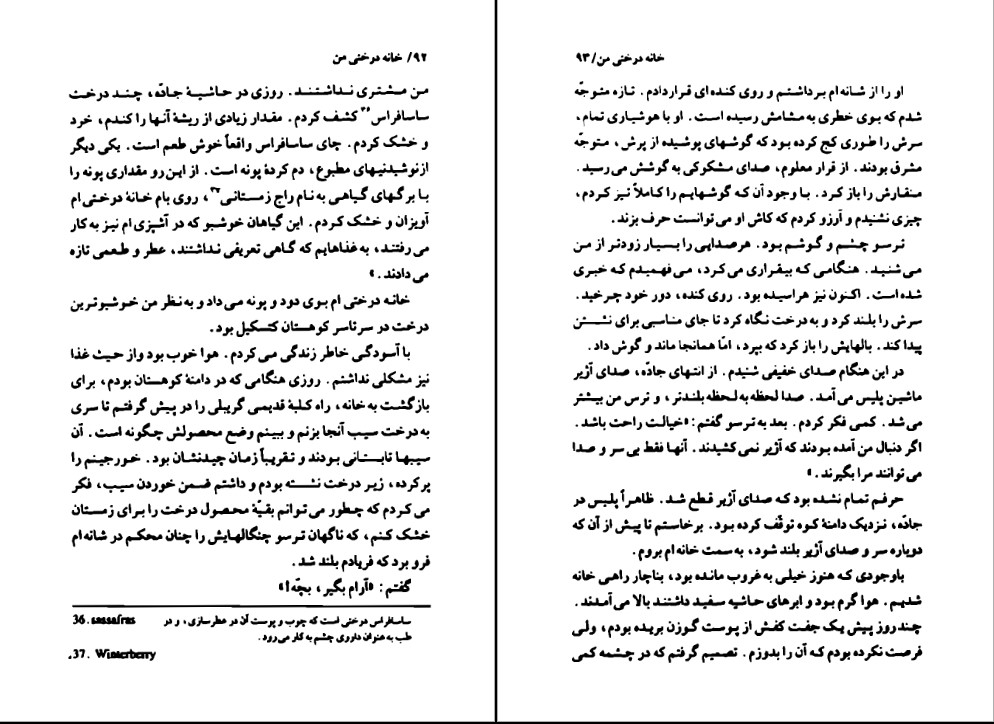 ۹۲/ خانه درختی من
من مشتری نداشتند. روزی در حاشیهٔ جادّه، چند درخت
ساسافراس۳۶ کشف کردم. مقدار زیادی از ریشهٔ آنها را کندم، خرد
و خشک کردم. چای ساسافراس واقعاً خوش طعم است. یکی دیگر
ازنوشیدنیهای مطبوع، دم کردهٔ پونه است. از این رو مقداری پونه را
با برگهای گیاهی به نام راج زمستانی۳۷، روی بام خانهٔ درختی ام
آویزان و خشک کردم. این گیاهان خوشبو که در آشپزی ام نیز به کار
می رفتند، به غذاهایم که گاهی تعریفی نداشتند، عطر و طعمی تازه
می دادند.»
خانه درختی ام بوی دود و پونه می داد و به نظر من خوشبوترین
درخت در سرتاسر کوهستان کتسکیل بود.
با آسودگی خاطر زندگی می کردم. هوا خوب بود واز حیث غذا
نیز مشکلی نداشتم. روزی هنگامی که در دامنهٔ کوهستان بودم، برای
بازگشت به خانه، راه کلبهٔ قدیمی گریبلی را در پیش گرفتم تا سری
به درخت سیب آنجا بزنم و ببینم وضع محصولش چگونه است. آن
سیبها تابستانی بودند و تقریباً زمان چیدنشان بود. خورجینم را
پرکرده، زیر درخت نشسته بودم و داشتم ضمن خوردن سیب، فکر
می کردم که چطور می توانم بقیّهٔ محصول درخت را برای زمستان
خشک کنم، که ناگهان ترسو چنگالهایش را چنان محکم در شانه ام
فرو برد که فریادم بلند شد.
گفتم: «آرام بگیر، بچّه!»
36. sassafras ساسافراس درختی است که چوب و پوست آن در عطرسازی، و در
طب به عنوان داروی چشم به کار می رود.
37. Winterberry.
خانه درختی من/ ۹۳
او را از شانه ام برداشتم و روی کنده ای قراردادم. تازه متوجّه
شدم که بوی خطری به مشامش رسیده است. او با هوشیاری تمام،
سرش را طوری کج کرده بود که گوشهای پوشیده از پرش، متوجّه
مشرق بودند. از قرار معلوم، صدای مشکوکی به گوشش می رسید.
منقارش را باز کرد. با وجود آن که گوشهایم را کاملاً تیز کردم،
چیزی نشنیدم و آرزو کردم که کاش او می توانست حرف بزند.
ترسو چشم و گوشم بود. هرصدایی را بسیار زودتر از من
می شنید. هنگامی که بیقراری می کرد، می فهمیدم که خبری
شده است. اکنون نیز هراسیده بود. روی کنده، دور خود چرخید.
سرش را بلند کرد و به درخت نگاه کرد تا جای مناسبی برای نشستن
پیدا کند. بالهایش را باز کرد که بپرد، امّا همانجا ماند و گوش داد.
در این هنگام صدای خفیفی شنیدم. از انتهای جادّه، صدای آژیر
ماشین پلیس می آمد. صدا لحظه به لحظه بلندتر، و ترس من بیشتر
می شد. کمی فکر کردم. بعد به ترسو گفتم: «خیالت راحت باشد.
اگر دنبال من آمده بودند که آژیر نمی کشیدند. آنها فقط بی سر و صدا
می توانند مرا بگیرند.»
حرفم تمام نشده بود که صدای آژیر قطع شد. ظاهراً پلیس در
جادّه، نزدیک دامنهٔ کوه توقّف کرده بود. برخاستم تا پیش از آن که
دوباره سر و صدای آژیر بلند شود، به سمت خانه ام بروم.
باوجودی که هنوز خیلی به غروب مانده بود، بناچار راهی خانه
شدیم. هوا گرم بود و ابرهای حاشیه سفید داشتند بالا می آمدند.
چند روز پیش یک جفت کفش از پوست گوزن بریده بودم، ولی
فرصت نکرده بودم که آن را بدوزم. تصمیم گرفتم که در چشمه کمی